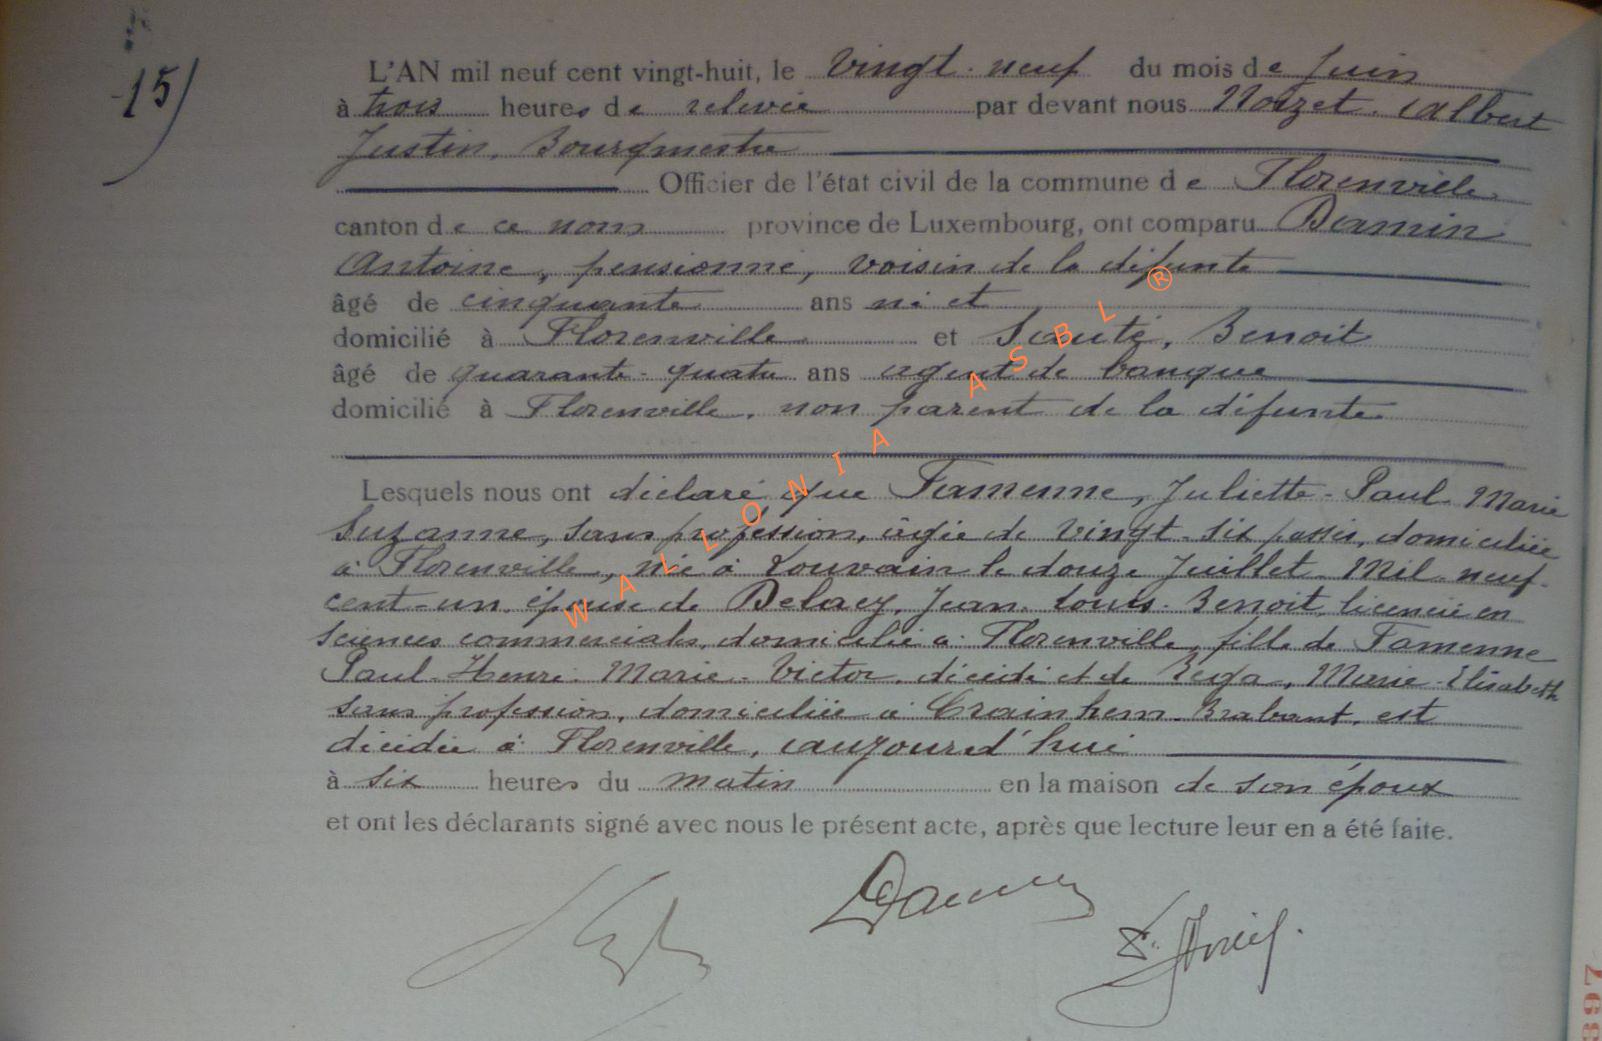 15)
L'AN mil neuf cent vingt-huit, le vingt-neuf du mois de Juin
à trois heures de relevée par devant nous Nozet Albert
Justin, Bourgmestre
Officier de l'état civil de la commune de Florenville
canton de ce nom province de Luxembourg, ont comparu Damin
Antoine, pensionné, voisin de la défunte
âgé de cinquante ans ni et
domicilié à Florenville et Benoit
âgé de quarante-quatre ans agent de banque
domicilié à Florenville, non parent de la défunte
Lesquels nous ont déclaré que Famenne, Juliette-Paul-Marie
Suzanne, sans profession, âgée de vingt-six passés, domiciliée
à Florenville, née à Louvain le douze Juillet Mil neuf-
cent-un, épouse de Delaey, Jean-Louis-Benoit, licencié en
sciences commerciales, domicilié à Florenville, fille de Famenne
Paul-Henri-Marie-Victor, décédé et de Rega, Marie-Elisabeth
sans profession, domiciliée à Crainhem-Brabant, est
décédée à Florenville, aujourd'hui
à six heures du matin en la maison de son époux
et ont les déclarants signé avec nous le présent acte, après que lecture leur en a été faite.
WALLONIA ASBL ®